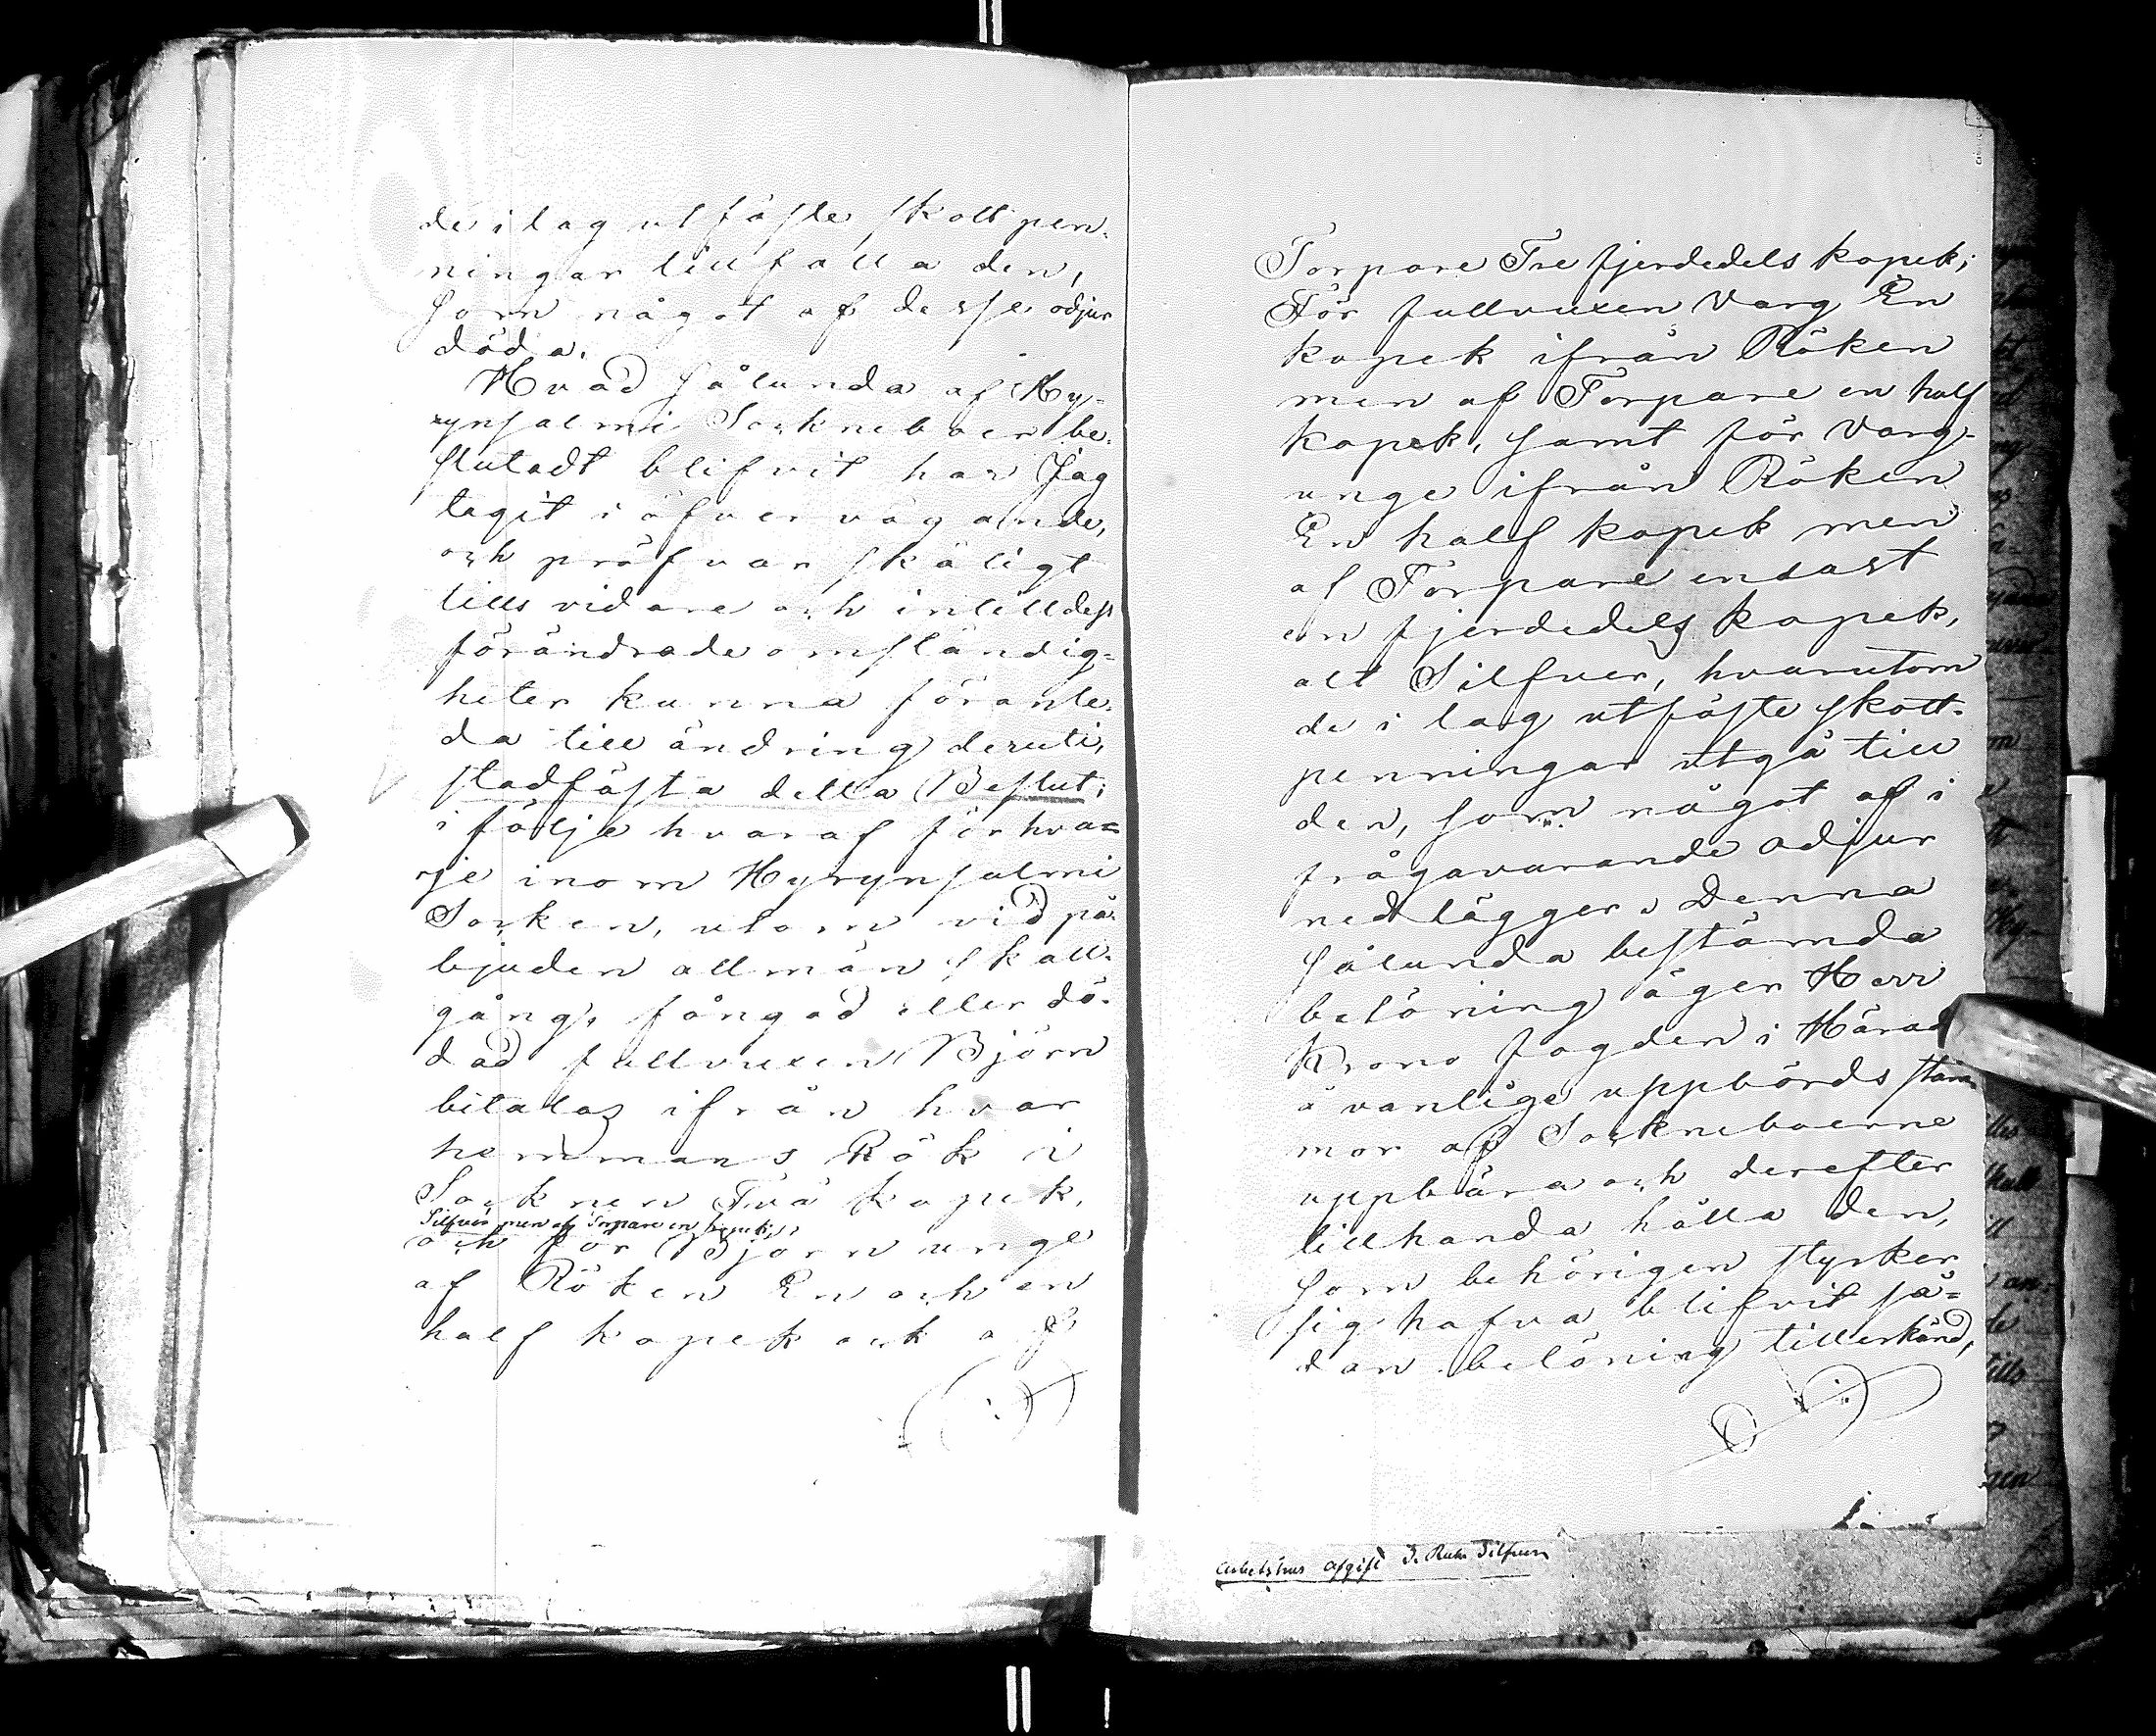 de i lag utfäste skottpen-
ningar tillfalla den,
som något af desse odjur
döda.
Hvad sålunda af Hy-
rynsalmi Sockneboer be-
slutadt blifvit har Jag
tagit i öfvervägande,
och pröfvar skäligt
tills vidare och intilldess
förändrade omständig-
heter kunna föranle-
da till ändring deruti,
stadfästa detta Beslut;
i följe hvaraf för hva-
rje inom Hyrynsalmi
Socken, utom vid på-
bjuden allmän skall-
gång, fångad eller dö-
dad fullvuxen Björn
betalas ifrån hvar
hemmans Rök i
Socknen Två kopek,
Silfver men af Torpare en kopek,
och för Björnunge
af Röken En och en
half kopek och af
Torpare Tre fjerdedels kopek;
För fullvuxen Varg En
kopek ifrån Röken
men af Torpare en half
kopek, samt för Varg-
unge ifrån Röken
En half kopek men
af Torpare endast
en fjerdedels kopek,
allt Silfver, hvarutom
de i lag utfäste skott-
penningar utgå till
den, som något af i
frågavarande odjur
nedlägger. Denna
sålunda bestämda
belöning äger Herr
Krono Fogden i Härad
å vanlige uppbörds stäm-
mor af Sockneboerne
uppbära och derefter
tillhanda hålla den,
som behörigen styrker
sig hafva blifvit så-
dan belöning tillerkänd,
Arbetshus Afgift 3. Rub. Silfver